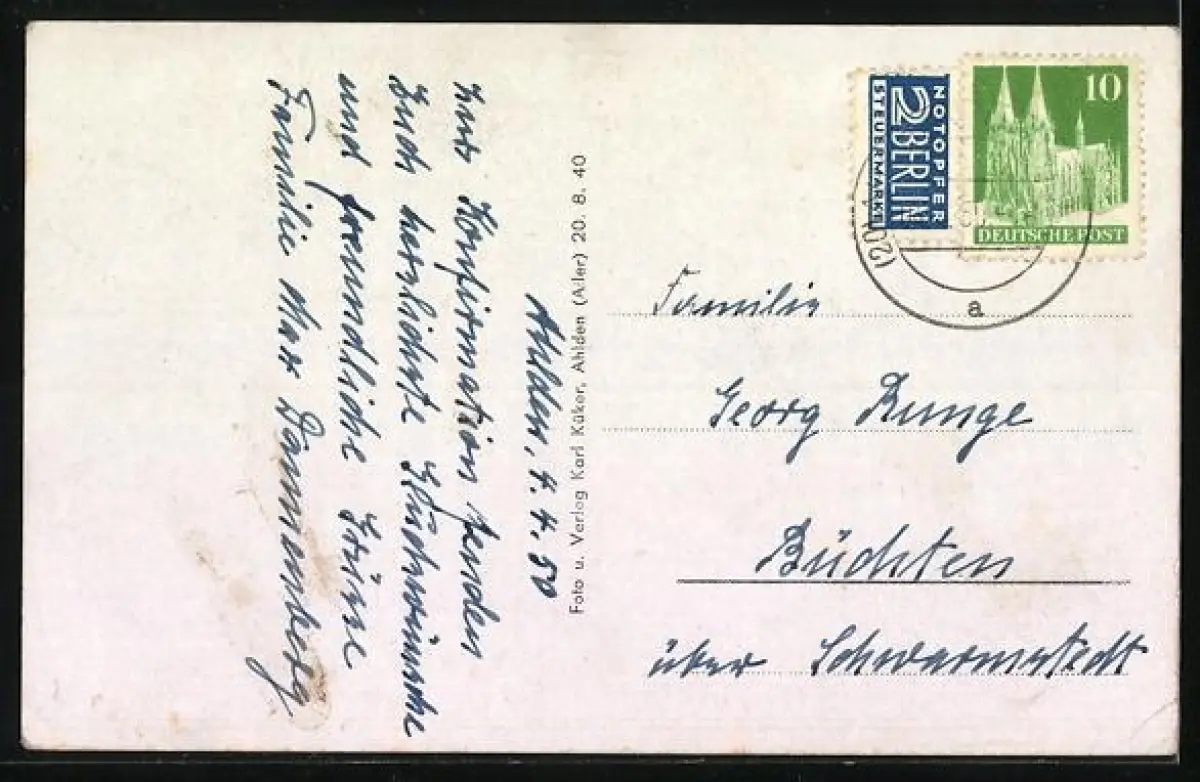 Ahlden, 4. 4. 50
Zur Konfirmation senden
Euch herzlichste Glückwünsche
und freundliche Grüsse
Familie Max Dannenberg
Foto u. Verlag Karl Küker, Ahlden (Aller) 20. 8. 40
NOTOPFER
2 BERLIN
STEUERMARKE
10
DEUTSCHE POST
(20
a
Familie
Georg Runge
Büchten
über Schwarmstedt